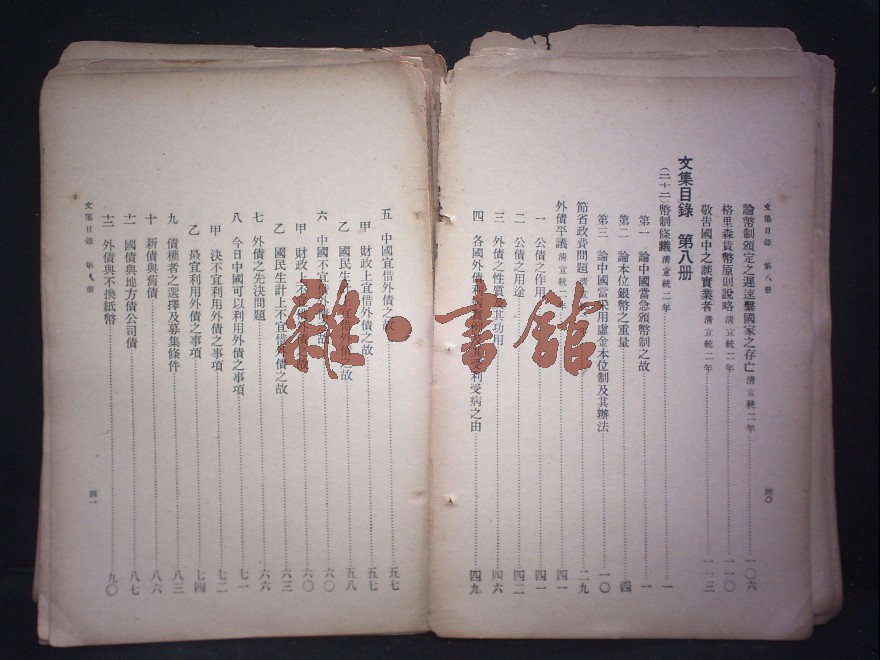 文集目錄 第八册
四〇
論幣制頒定之遲速繫國家之存亡 清宣統二年 一〇六
格里森貨幣原則說略 清宣統二年 一一〇
敬告國中之談實業者 清宣統二年 一一三
文集目錄 第八册
(二十二)幣制條議 清宣統二年 一
第一 論中國當急頒幣制之故 一
第二 論本位銀幣之重量 四
第三 論中國當采用虛金本位制及其辦法 一〇
節省政費問題 清宣統二 二九
外債平議 清宣統二 四一
一 公債之作用 四一
二 公債之用途 四二
三 外債之性質及其功用 四六
四 各國外債 受利受病之由 四九
五 中國宜借外債之故 五七
甲 財政上宜借外債之故 五七
乙 國民生計上宜借外債之故 五八
六 中國不宜借外債之故 六〇
甲 財政上不宜借外債之故 六〇
乙 國民生計上不宜借外債之故 六三
七 外債之先決問題 六六
八 今日中國可以利用外債之事項 七一
甲 決不宜利用外債之事項 七二
乙 最宜利用外債之事項 七四
九 債權者之選擇及募集條件 八三
十 新債與舊債 八六
十一 國債與地方債公司債 八七
十二 外債與不換紙幣 九〇
文集目錄 第八册
四一
雜·書館